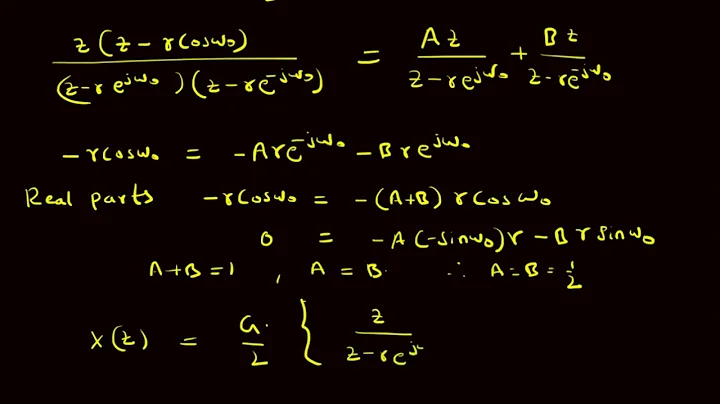 z(z - r cosω₀) / (z - r e^{jω₀})(z - r e^{-jω₀}) = Az / z - re^{jω₀} + Bz / z - re^{-jω₀}
-r cosω₀ = -A r e^{-jω₀} - B r e^{jω₀}
Real parts -r cosω₀ = -(A+B) r cos ω₀
0 = -A (-sinω₀) r - B r sinω₀
A+B = 1 , A = B. ∴ A = B = 1/2
X(z) = G/2 { z / z - r e^{j